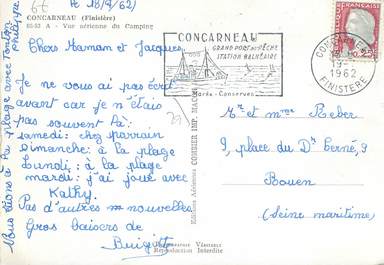 CONCARNEAU (Finistère)
85-53 A - Vue aérienne du Camping
le 18/9/62
Chers Maman et Jacques,
Je ne vous ai pas écrit
avant car je n'étais
pas souvent là:
samedi: chez parrain
Dimanche: à la plage
Lundi: à la plage
mardi: j'ai joué avec
Kathy.
Pas d'autres nouvelles
Gros baisers de
Nous étions à la plage avec Tonton
Philippe
CONCARNEAU
GRAND PORT DE PÊCHE
STATION BALNÉAIRE
Marée-Conserves
1962
FINISTERE
Editions Aériennes COMBIER IMP. MACON
Mr et mme Reber
9, place du Dr Cerné, 9
Rouen
(Seine maritime)
Reproduction Interdite